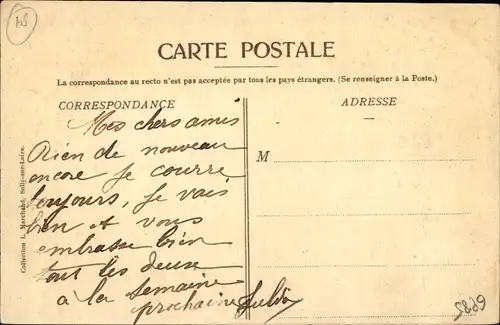 CARTE POSTALE
La correspondance au recto n'est pas acceptée par tous les pays étrangers. (Se renseigner à la Poste.)
CORRESPONDANCE
ADRESSE
M
Mes chers amis
Rien de nouveau
encore je courre
toujours, je vais
bien et vous
embrasse bien
tout les deux
à la semaine
prochaine
Collection L. Marchand, Sully-sur-Loire.